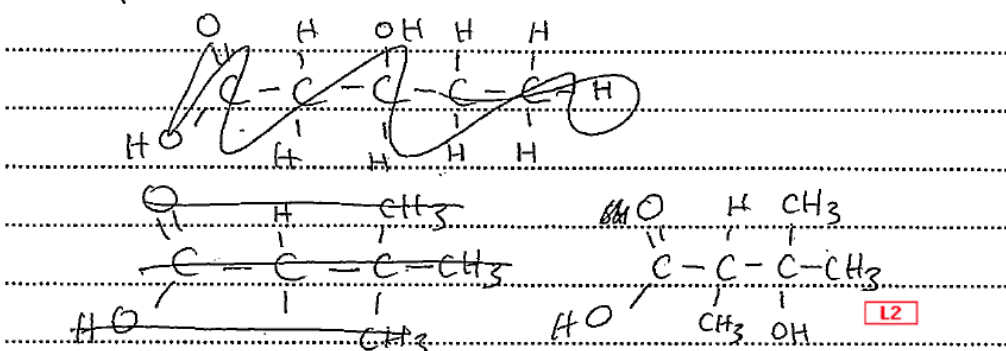 O H OH H H
C - C - C - C - C - H
H O H H H H
O H CH3
C - C - C - CH3
H O CH3
O H CH3
C - C - C - CH3
HO CH3 OH
L2